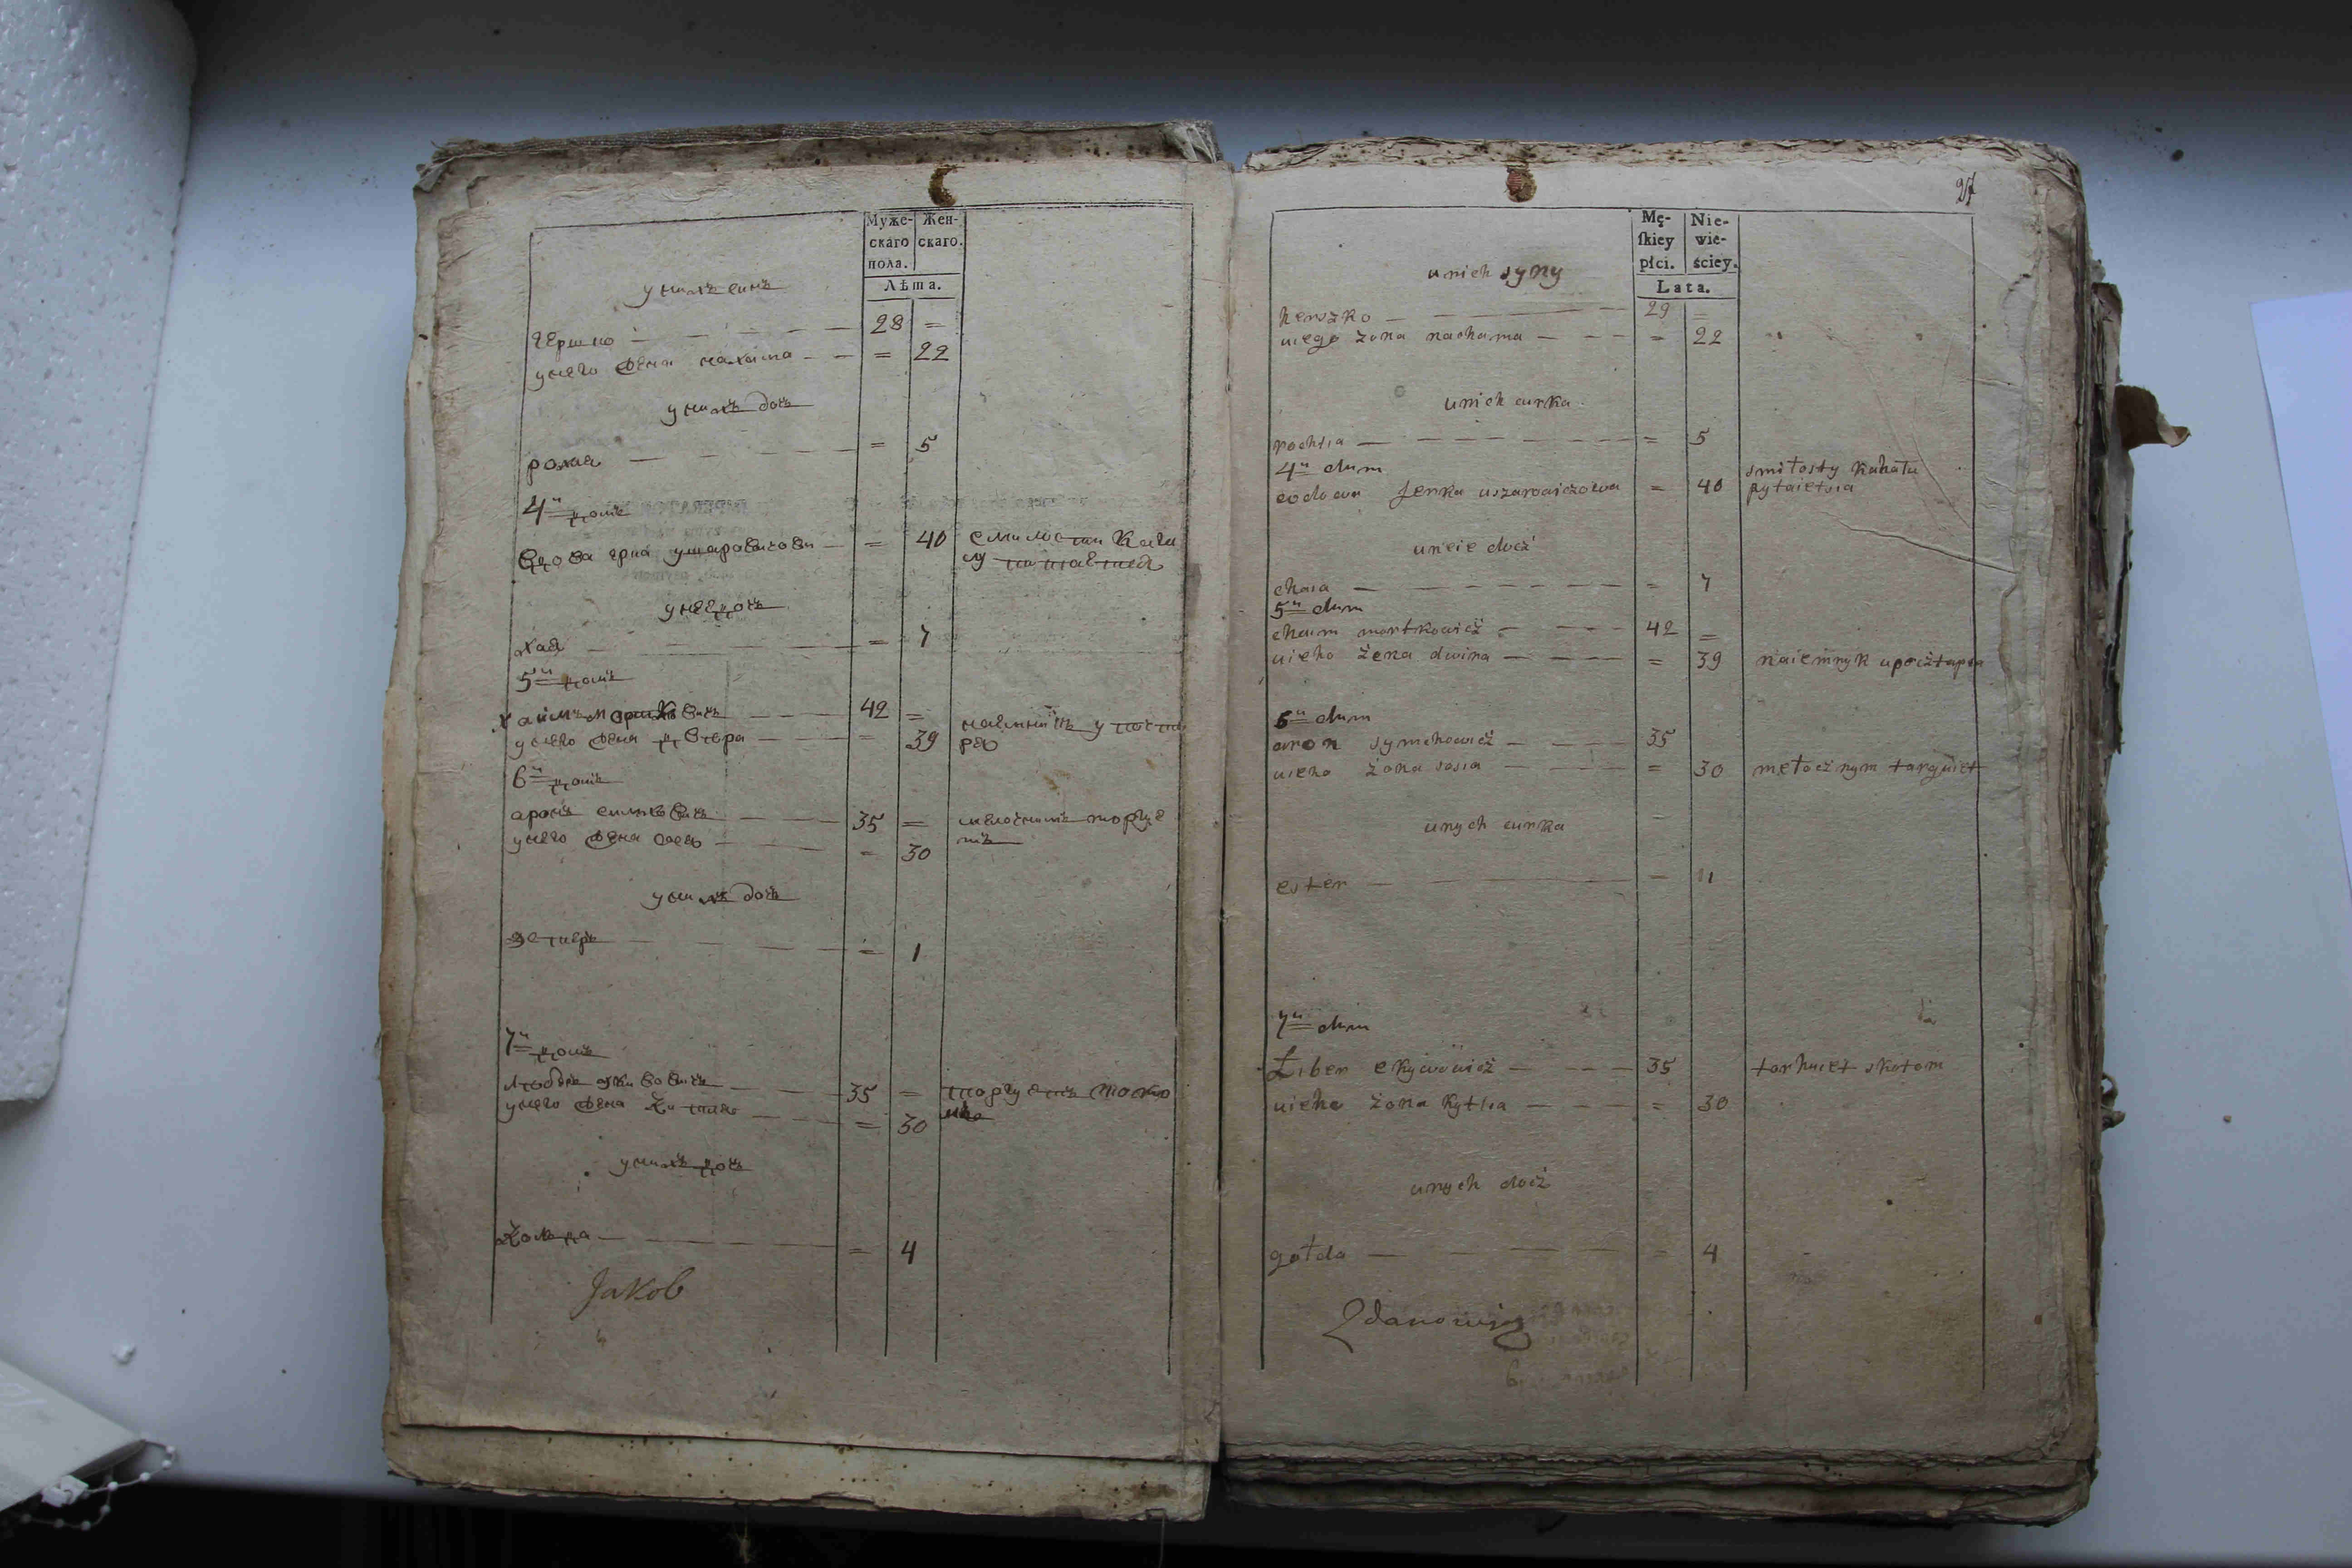 Муже-
скаго
пола.
Жен-
скаго.
Лѣта.
у нихъ синъ
гершко — — — — 28 =
у него жена нахама — — = 22
у нихъ дочъ
рохля — — — — = 5
4й домъ
вдова ерка ушаровичови — = 40 смилости Кага
лу питаетця
у нее дочъ
хая — — — — = 7
5й домъ
хаимъ мортковичъ — — 42 =
у него жена двера — — = 39 наемникъ у почта
ра
6й домъ
аронъ симховичъ — — 35 = мелочнимъ торгуе
тъ
у него жена сося — — = 30
у нихъ дочъ
эстеръ — — — = 1
7й домъ
либеръ екивовичъ — — 35 = торгуетъ ското
мъ
у него жена Китля — — = 30
у нихъ дочъ
Колда — — — = 4
Jakob
27
Mę-
ſkiey
płci.
Nie-
wie-
ściey.
Lata.
unich syny
herszko — — 29 =
uiego żona nachama — — — = 22
unich curka
rochla — — — — = 5
4й dum
wdowa Jerka uszarowiczowa = 40 smiłosty Kahału
pytaietsia
uneie docż
chaia — — — — = 7
5й dum
chaim mortkowicż — — — 42 =
uieho żena dwira — — — = 39 naiemnyk upocżtapia
6й dum
aron symchowicż — — — 35
uieho żona sosia — — — = 30 mełocżnym targuiet
unych curka
ester — — = 11
7й dum
Liber ekywowicż — — — 35 tarhuiet skotom
uieho żona Kytlia — — — = 30
unych docż
gołda — — — = 4
Zdanowicz